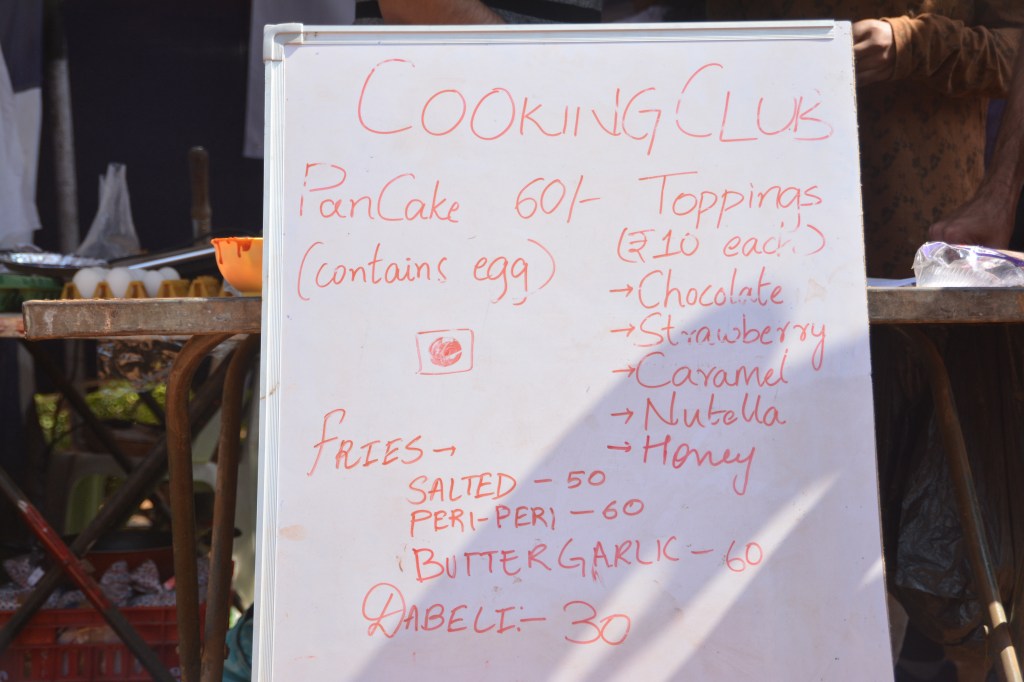 COOKING CLUB
PanCake 60/-
(contains egg)
Toppings
(₹10 each)
→Chocolate
→Strawberry
→Caramel
→Nutella
→Honey
FRIES→
SALTED - 50
PERI-PERI - 60
BUTTER GARLIC - 60
DABELI:- 30